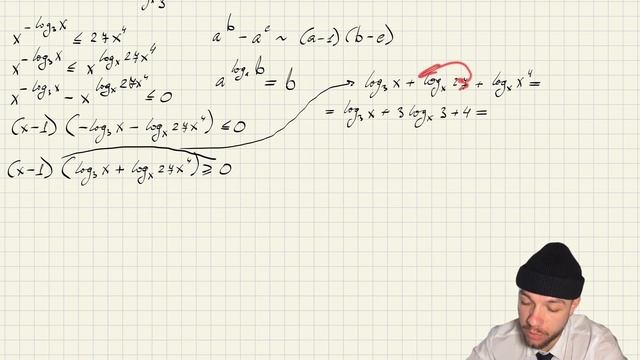 x^{-log₃x} ≤ 27x⁴
x^{-log₃x} ≤ x^{logₓ27x⁴}
x^{-log₃x} - x^{logₓ27x⁴} ≤ 0
(x-1) (-log₃x - logₓ27x⁴) ≤ 0
(x-1) (log₃x + logₓ27x⁴) ≥ 0
a^b - a^c ~ (a-1) (b-c)
a^{logₐb} = b
log₃x + logₓ27 + logₓx⁴ =
= log₃x + 3logₓ3 + 4 =